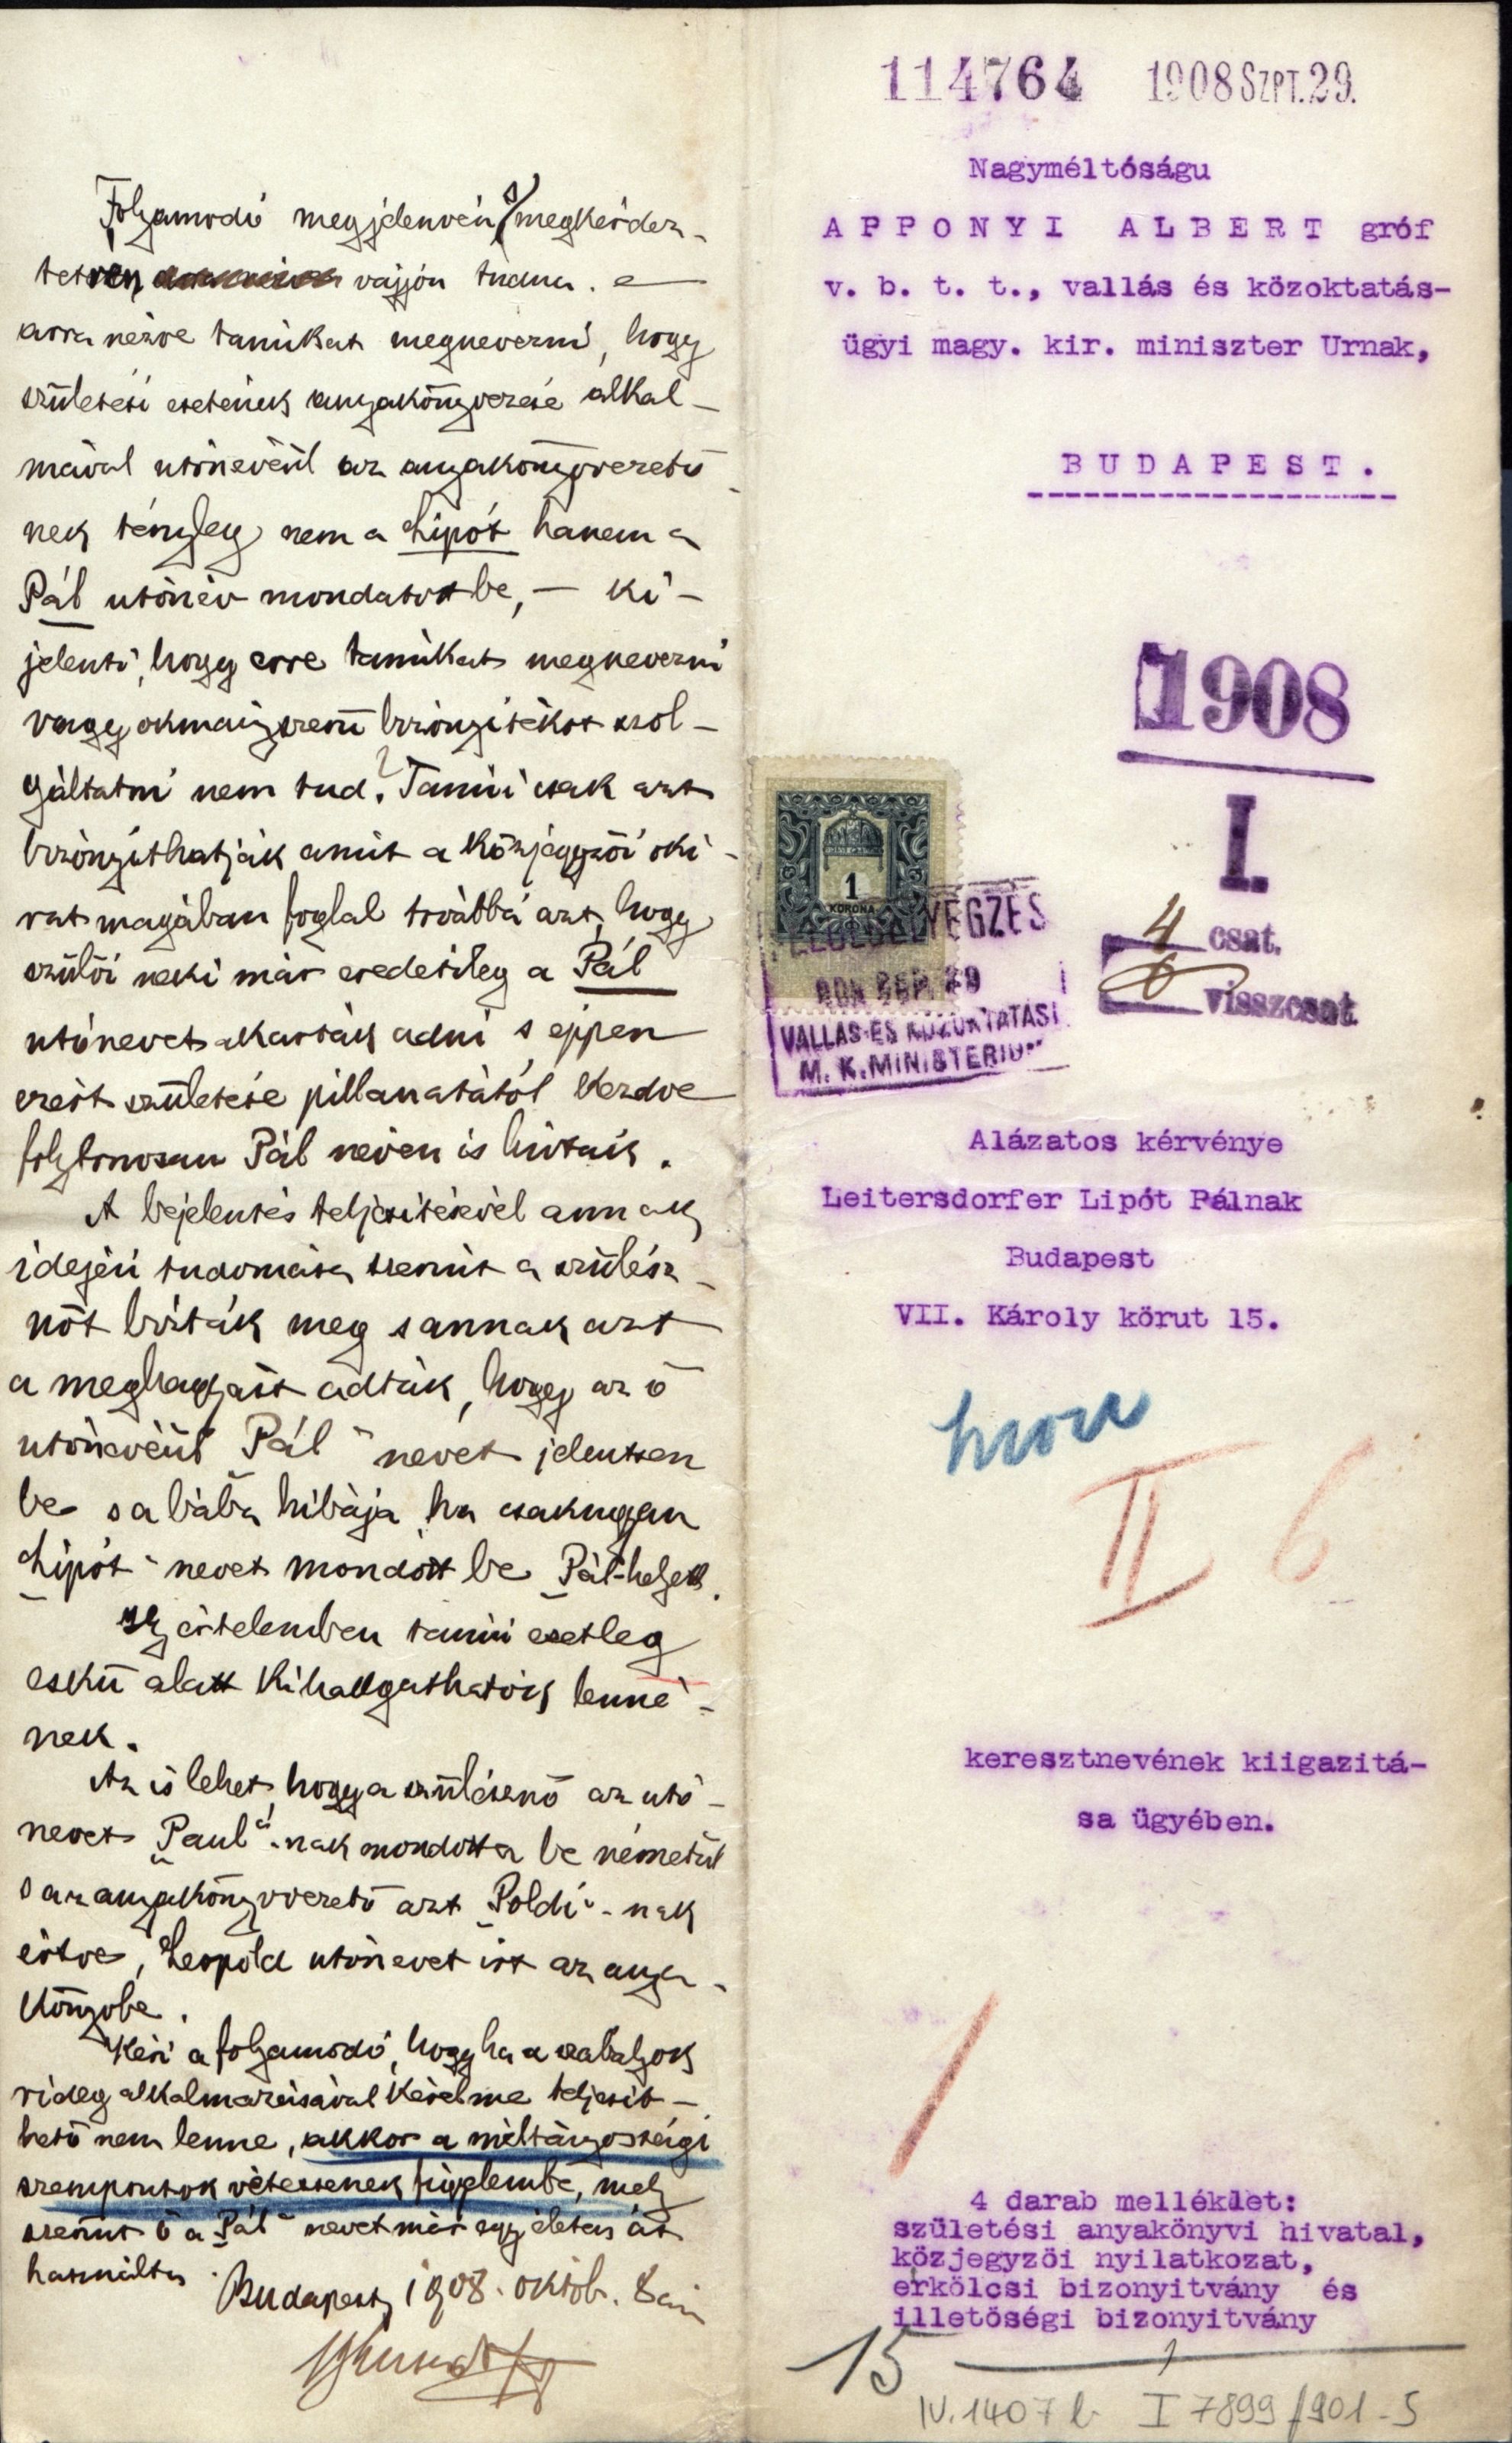 Folyamodó megjelenvén s megkérdez-
tetvén vajjon tudna-e
arra nézve tanúkat megnevezni, hogy
születési esetének anyakönyvezése alkal-
mával utónevéül az anyakönyvvezető
nek tényleg nem a Lipót hanem a
Pál utónév mondatott be, — ki-
jelenti, hogy erre tanúkat megnevezni
vagy okmányszerü bizonyitékot szol-
gáltatni nem tud. Tanúi csak azt
bizonyithatják amit a közjegyzői oki-
rat magában foglal továbbá azt, hogy
szülői neki már eredetileg a Pál
utónevet akarták adni s éppen
ezért születése pillanatától kezdve
folytonosan Pál néven is hivták.
A bejelentés teljesitésével annak
idején tudomása szerint a szülész-
nőt bizták meg s annak azt
a meghagyást adták, hogy az ő
utónevéül „Pál" nevet jelentsen
be s a bába hibája ha csakugyan
„Lipót" nevet mondott be „Pál" helyett.
Ily értelemben tanúi esetleg
eskü alatt kihallgathatók lenné-
nek.
Az is lehet, hogy a szülésznő az utó-
nevet „Paul"-nak mondotta be németül
s az anyakönyvvezető azt „Poldi"-nak
értve, Leopold utónevet irt az anya-
könyvbe.
Kéri a folyamodó, hogy ha a szabályok
rideg alkalmazásával kérelme teljesit-
hető nem lenne, akkor a méltányossági
szempontok vétessenek figyelembe, mely
szerint ő a „Pál" nevet már egy életen át
használta.
Budapest, 1908. októb. 8án
114764 1908 SZPT. 29.
Nagyméltóságu
APPONYI ALBERT gróf
v. b. t. t., vallás és közoktatás-
ügyi magy. kir. miniszter Urnak,
BUDAPEST.
1908
I.
4 csat.
6 visszcsat.
1
KORONA
VALLÁS-ÉS KÖZOKTATÁSI
M. K. MINISTERIUM
Alázatos kérvénye
Leitersdorfer Lipót Pálnak
Budapest
VII. Károly körut 15.
II 6
keresztnevének kiigazitá-
sa ügyében.
4 darab melléklet:
születési anyakönyvi hivatal,
közjegyzöi nyilatkozat,
erkölcsi bizonyitvány és
illetöségi bizonyitvány
15
IV. 1407 b I 7899/901-5